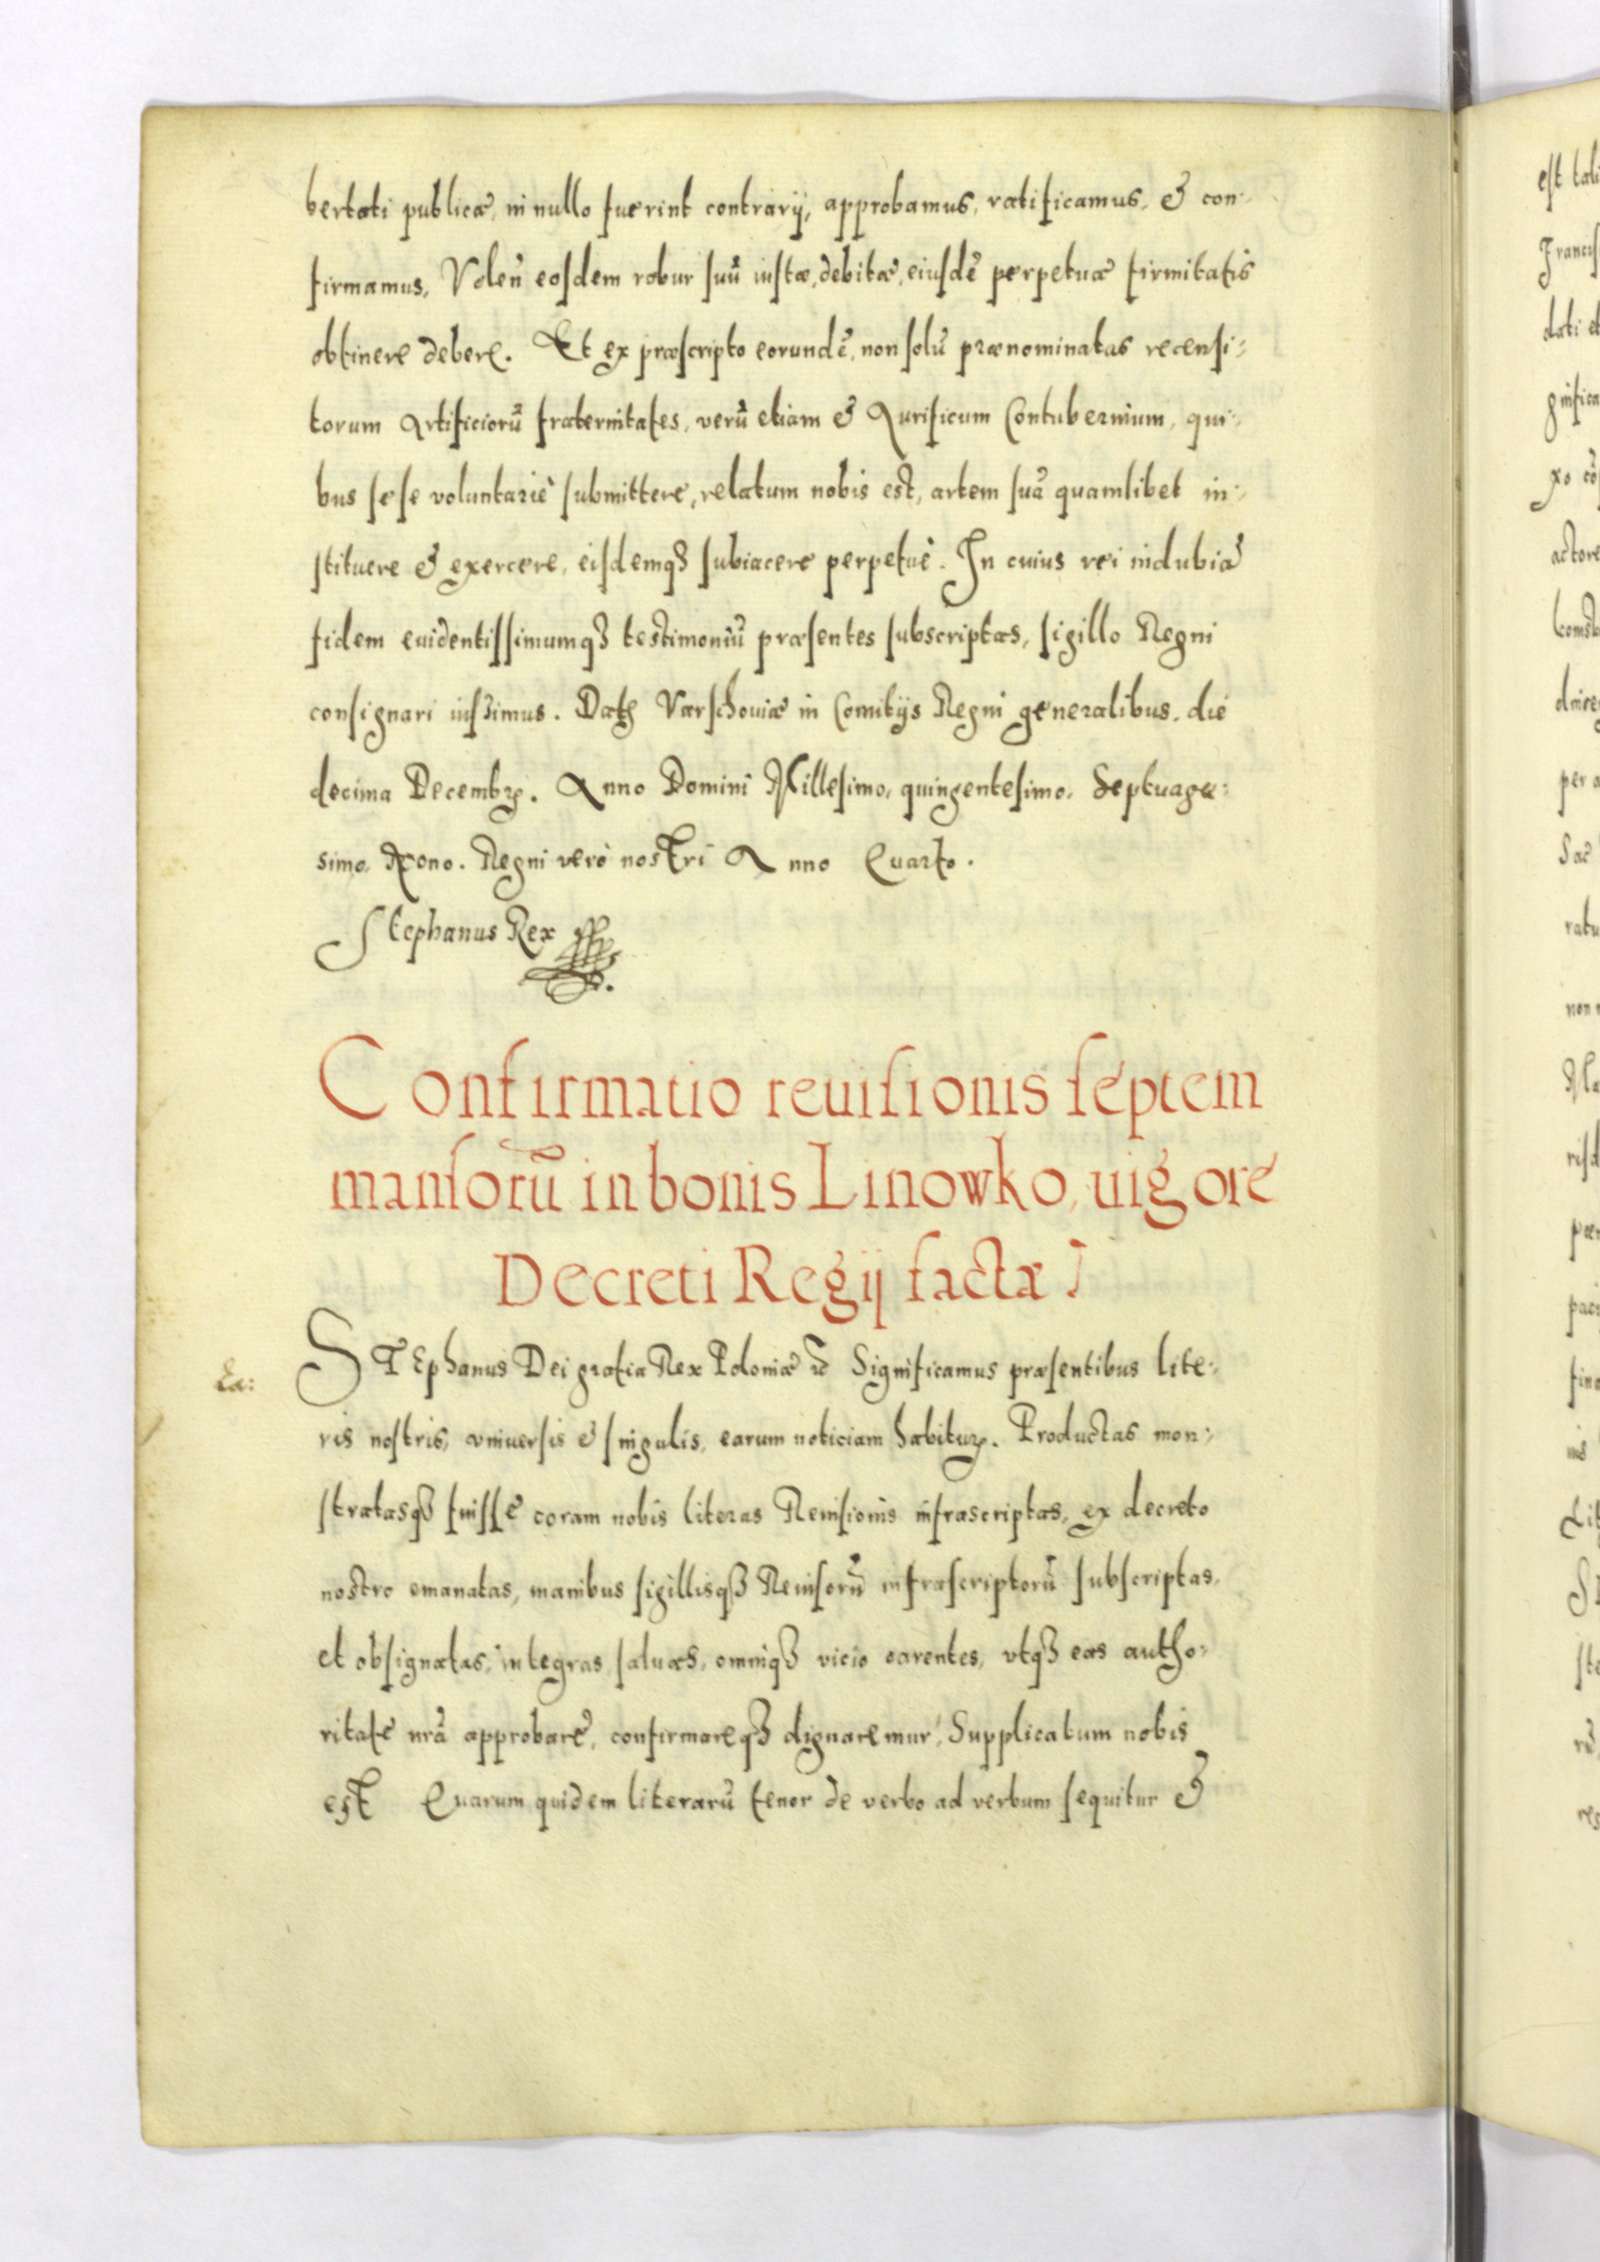 bertati publicæ, in nullo fuerint contrarij, approbamus, ratificamus, & con-
firmamus, Volen̄ eosdem robur suū iustæ, debitæ, eiusdē perpetuæ firmitatis
obtinere debere. Et ex præscripto eorundē, non solū prænominatas recensi-
torum Artificiorū fraternitates, verū etiam & Aurificum Contubernium, qui-
bus sese voluntariè submittere, relatum nobis est, artem suā quamlibet in-
stituere & exercere, eisdemqȝ subiacere perpetuè. In cuius rei indubiā
fidem euidentissimumqȝ testimoniū præsentes subscriptas, sigillo Regni
consignari iussimus. Datꝭ Varschouiæ in Comitijs Regni generalibus, die
decima Decembrꝭ. Anno Domini Millesimo, quingentesimo, Septuage-
simo, Nono. Regni verò nostri Anno Quarto.
Stephanus Rex
Confirmatio reuisionis septem
mansorū in bonis Linowko, uigore
Decreti Regij factæ
STEphanus Dei gratia Rex Poloniæ Significamus præsentibus lite-
ris nostris, vniuersis & singulis, earum noticiam habiturꝭ. Productas mon-
stratasqȝ fuisse coram nobis literas Reuisionis infrascriptas, ex decreto
nostro emanatas, manibus sigillisqȝ Reuisorū infrascriptorū subscriptas,
et obsignatas, integras, saluas, omniqȝ vicio carentes, vtqȝ eas autho-
ritate nrā approbare, confirmareqȝ dignaremur, Supplicatum nobis
est Quarum quidem literarū tenor de verbo ad verbum sequitur &